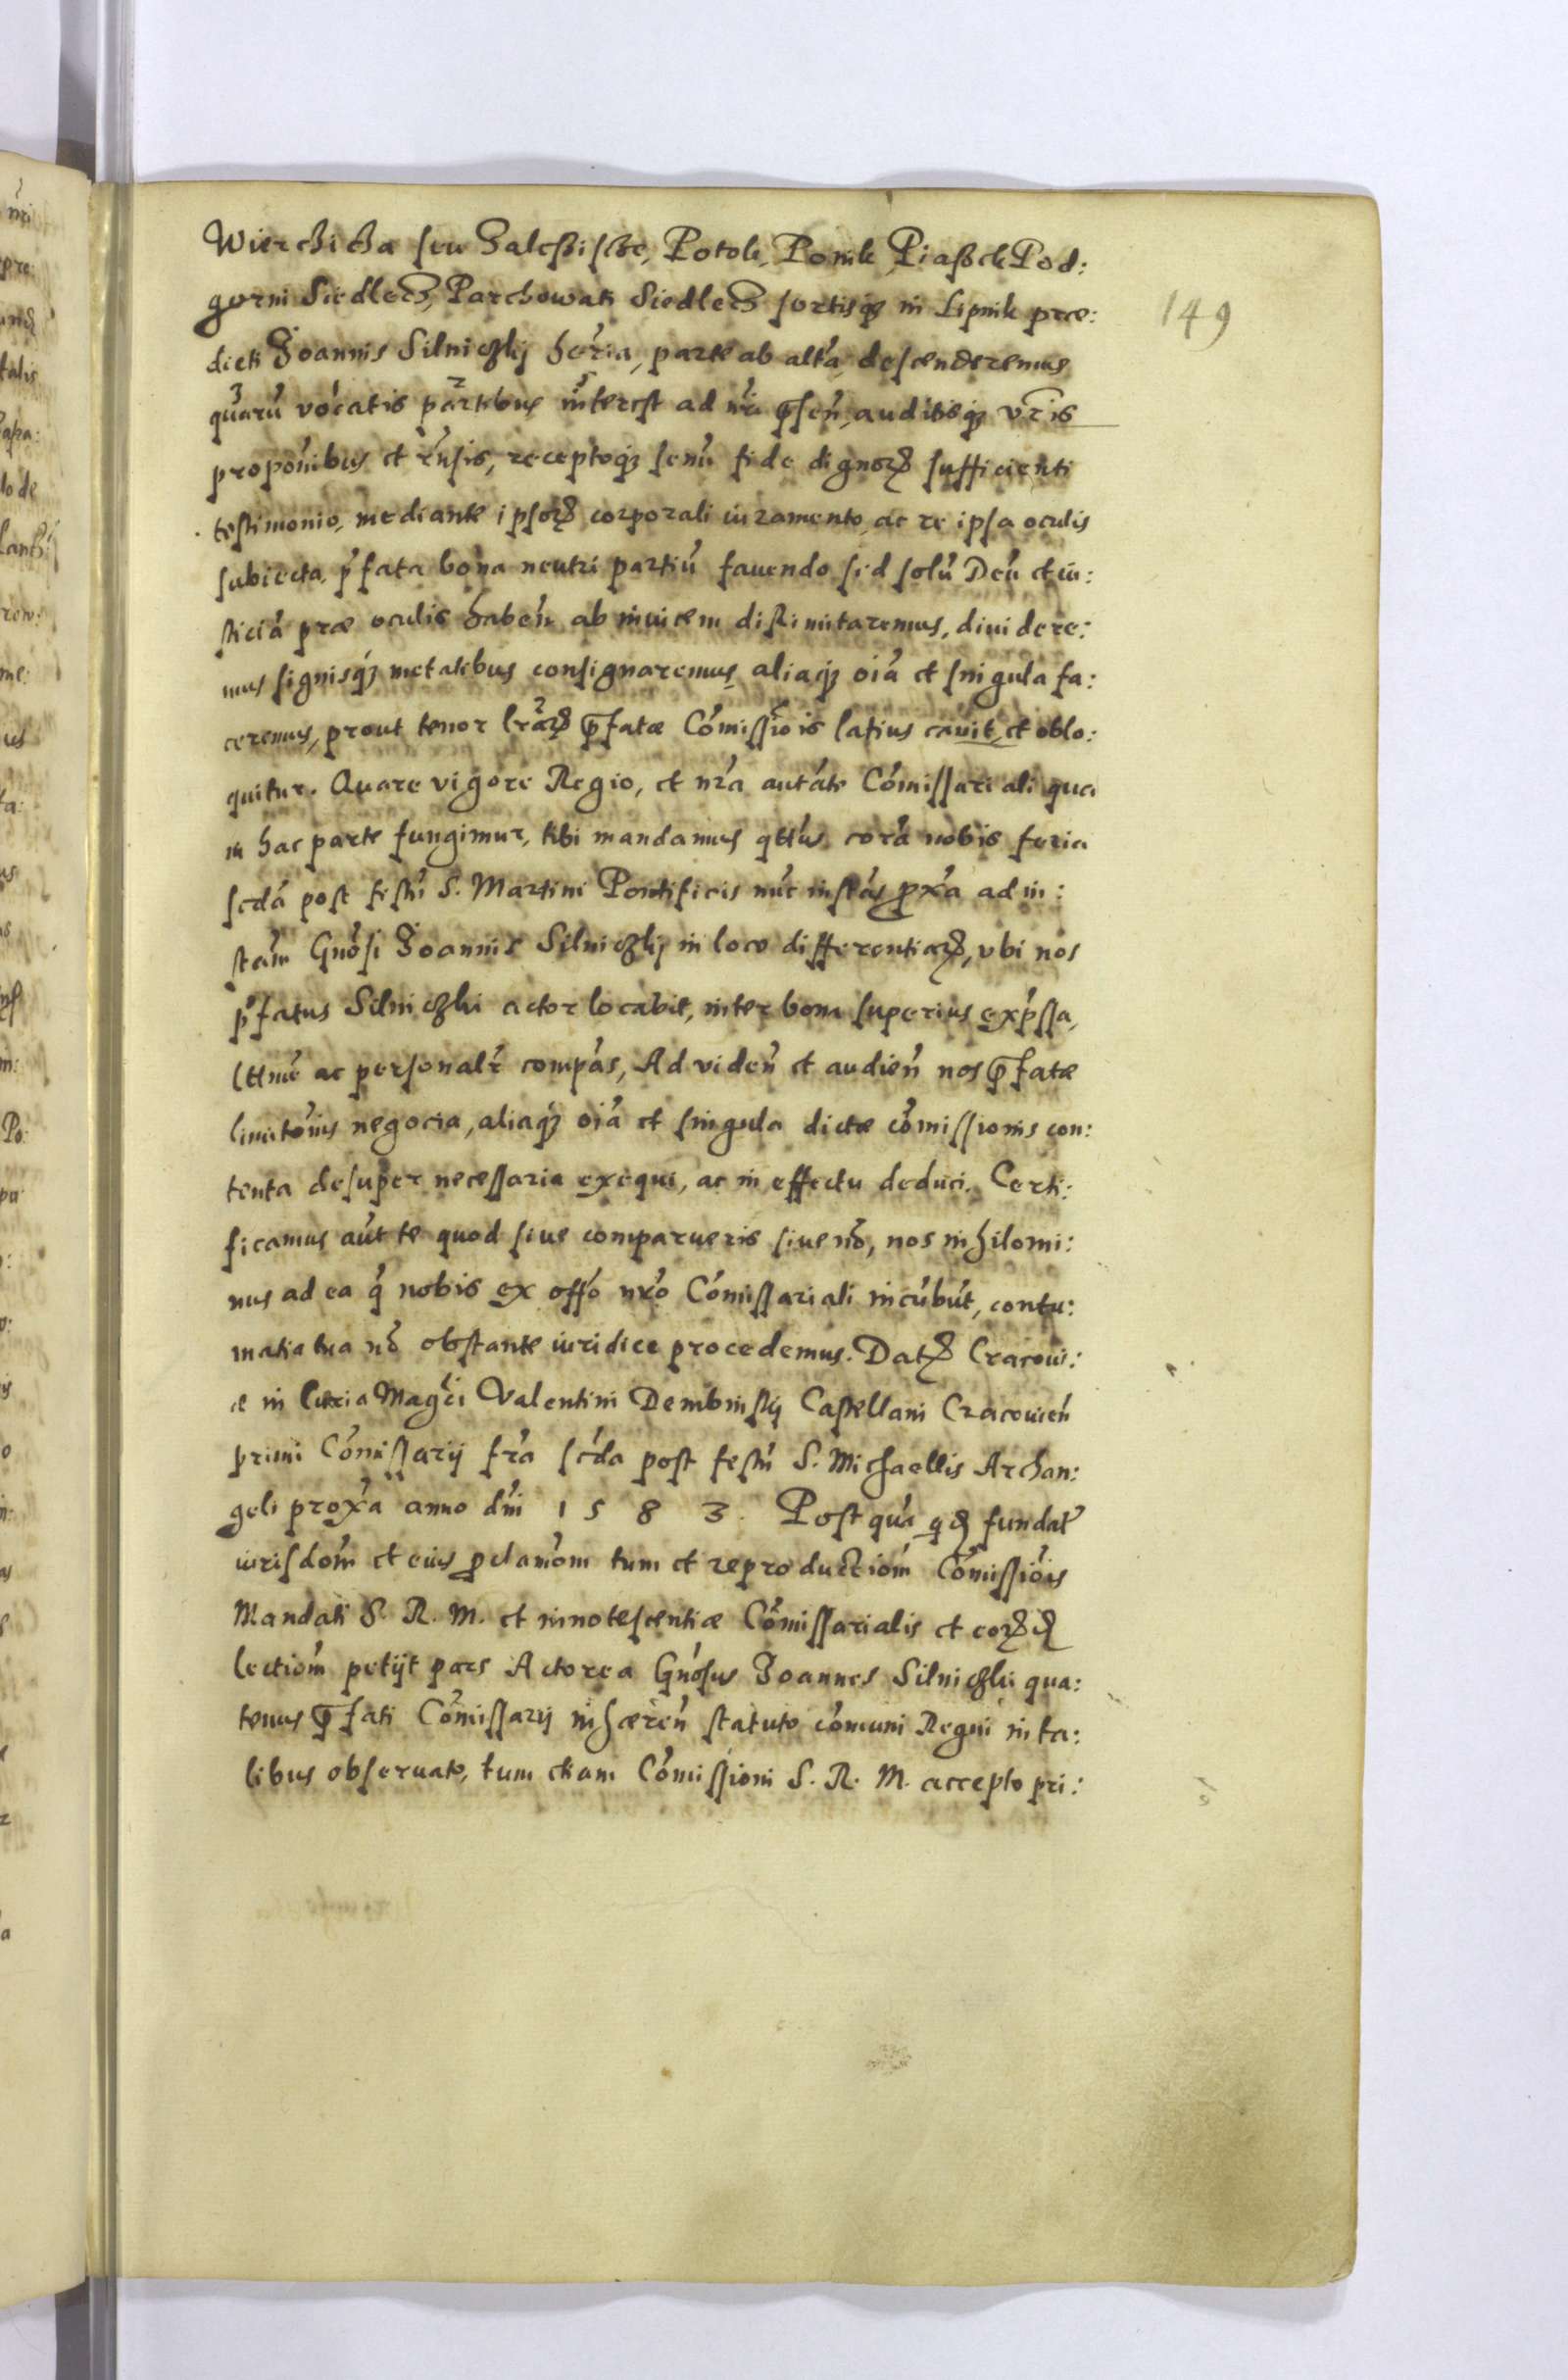 Wierchicha seu Zaleßische, Potok, Ponik, Piaßek Pod:
gorni Siedlecz, Parchowati Siedlecz sortisq₃ in Lipnik præ:
149
dicti Joannis Silniczkij hær̃ia, parte ab altã descenderemus
quãrũ vocatis partibus interest ad nr̃ã p̃sen̄, auditisq₃ vtr̃is
proponĩbus et rñsis, receptoq₃ senũ fide dignorꝝ sufficienti
testimonio, mediante ipsorꝝ corporali iuramento, ac re ipsa oculis
subiecta, p̃fata bona neutri partiũ fauendo sed solũ Deũ et iu:
sticiã præ oculis haben̄ ab inuicem distimitaremus, diuidere:
mus signisq₃ metalibus consignaremus, aliaq₃ oĩa et singula fa:
ceremus, prout tenor lr̃arꝝ p̃fatæ Cõmissiõis latius cauit, et oblo:
quitur. Quare vigore Regio, et nr̃a autãte Cõmissariali qua
in hac parte fungimur, tibi mandamus qttũs corã nobis feria
scdã post festũ S. Martini Pontificis nũc instãs p̃xã ad in:
stãm Gnõsi Joannis Silniczkij in loco differentiarꝝ, vbi nos
p̃fatus Silniczki actor locabit, inter bona superius exp̃ssa,
lttimẽ ac personalr̃ compãs, Ad viden̄ et audien̄ nos p̃fatæ
limitõnis negocia, aliaq₃ oĩa et singula dictæ cõmissionis con:
tenta desuper necessaria exequi, ac in effectu deduci. Certi:
ficamus aũt te quod siue comparueris siue nõ, nos nihilomi:
nus ad ea q̃ nobis ex offõ nr̃o Cõmissariali incũbũt, contu:
matia tua nõ obstante iuridice procedemus. Datꝝ Cracoui:
æ in Curia Magc̃i Valentini Dembinskij Castellani Cracouien̄
primi Cõmissarij fr̃a scda post festũ S. Michaellis Archan:
geli proxã anno dñi 1583. Post quã qd fundat̃
iurisdõm et eius p̃clamõm tum et reproductiõm Cõmissiõis
Mandati S. R. M. et innotescentiæ Cõmissarialis et eorꝝd
lectiõm petijt pars Actorea Gnõsus Joannes Silniczki qua:
tenus p̃fati Cõmissarij inhæren̄ statuto cõmuni Regni in ta:
libus obseruato, tum etiam Cõmissioni S. R. M. accepto pri: